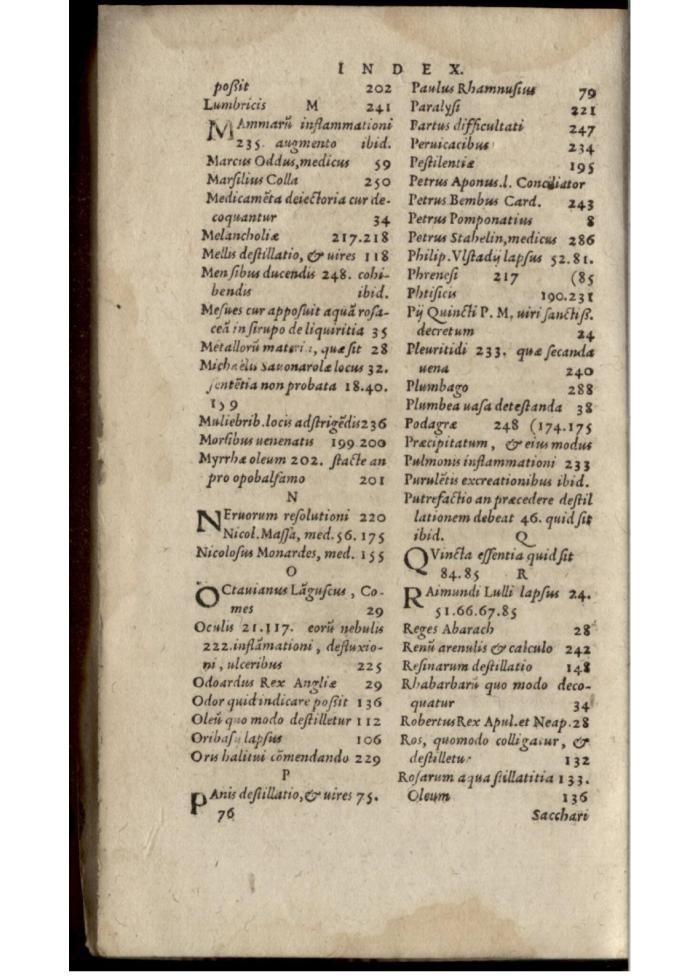 INDEX.
poßit 202
Lumbricis M 241
MAmmarũ inflammationi
235. augmento ibid.
Marcus Oddus, medicus 59
Marſilius Colla 250
Medicamẽta deiectoria cur de-
coquantur 34
Melancholiæ 217.218
Mellis deſtillatio, & uires 118
Menſibus ducendis 248. cohi-
bendis ibid.
Meſues cur appoſuit aquã roſa-
ceã in ſirupo de liquiritia 35
Metallorũ materia, quæ ſit 28
Michaelis Sauonarolæ locus 32.
ſentẽtia non probata 18.40.
159
Muliebrib. locis adſtrigẽdis 236
Morſibus uenenatis 199.200
Myrrhæ oleum 202. ſtacte an
pro opobalſamo 201
N
NEruorum reſolutioni 220
Nicol. Maſſa, med. 56. 175
Nicoloſus Monardes, med. 155
O
OCtauianus Lãguſcus, Co-
mes 29
Oculis 21.117. eorũ nebulis
222. inflãmationi, defluxio-
ni, ulceribus 225
Odoardus Rex Angliæ 29
Odor quid indicare poßit 136
Oleũ quo modo deſtilletur 112
Oribaſij lapſus 106
Oris halitui cõmendando 229
P
PAnis deſtillatio, & uires 75.
76
Paulus Rhamnuſius 79
Paralyſi 221
Partus difficultati 247
Peruicacibus 234
Peſtilentiæ 195
Petrus Aponus. l. Conciliator
Petrus Bembus Card. 243
Petrus Pomponatius 8
Petrus Stahelin, medicus 286
Philip. Vlſtadij lapſus 52.81.
Phreneſi 217 (85
Phtiſicis 190.231
Pij Quincti P. M. uiri ſanctiß.
decretum 24
Pleuritidi 233. quæ ſecanda
uena 240
Plumbago 288
Plumbea uaſa deteſtanda 38
Podagræ 248 (174.175
Præcipitatum, & eius modus
Pulmonis inflammationi 233
Purulẽtis excreationibus ibid.
Putrefactio an præcedere deſtil
lationem debeat 46. quid ſit
ibid. Q
QVincta eſſentia quid ſit
84.85 R
RAimundi Lulli lapſus 24.
51.66.67.85
Reges Abarach 28
Renũ arenulis & calculo 242
Reſinarum deſtillatio 148
Rhabarbarũ quo modo deco-
quatur 34
Robertus Rex Apul. et Neap. 28
Ros, quomodo colligatur, &
deſtilletur 132
Roſarum aqua ſtillatitia 133.
Oleum 136
Sacchari